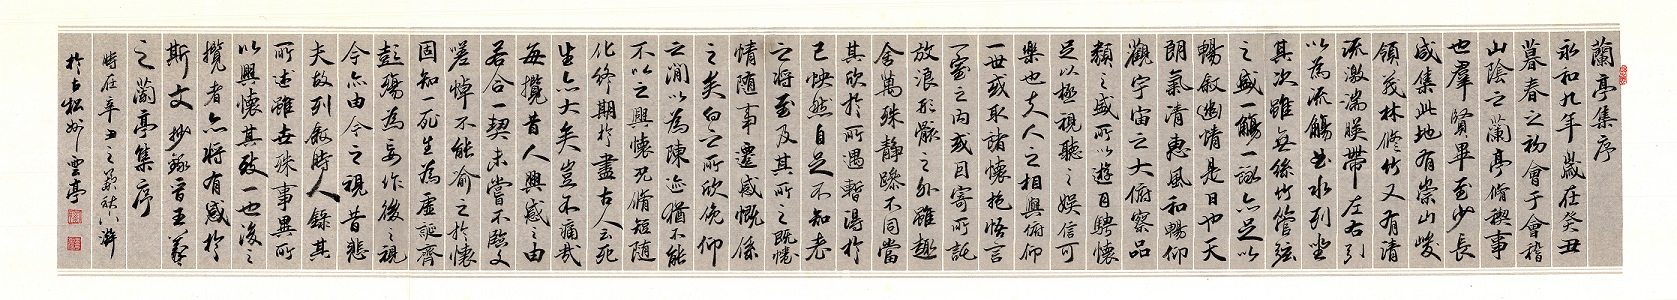 蘭亭集序
永和九年歲在癸丑
暮春之初會于會稽
山陰之蘭亭脩禊事
也羣賢畢至少長
咸集此地有崇山峻
領茂林修竹又有清
流激湍暎帶左右引
以為流觴曲水列坐
其次雖無絲竹管弦
之盛一觴一詠亦足以
暢敘幽情是日也天
朗氣清惠風和暢仰
觀宇宙之大俯察品
類之盛所以遊目騁懷
足以極視聽之娛信可
樂也夫人之相與俯仰
一世或取諸懷抱悟言
一室之內或因寄所託
放浪形骸之外雖趣
舍萬殊靜躁不同當
其欣於所遇暫得於
己怏然自足不知老
之將至及其所之既惓
情随事遷感慨係
之矣向之所欣俛仰
之閒以為陳迹猶不能
不以之興懷況脩短随
化終期於盡古人云死
生亦大矣豈不痛哉
每攬昔人興感之由
若合一契未嘗不臨文
嗟悼不能喻之於懷
固知一死生為虛誕齊
彭殤為妄作後之視
今亦由今之視昔悲
夫故列敘時人錄其
所述雖世殊事異所
以興懷其致一也後之
攬者亦將有感於
斯文 抄錄晉王羲
之蘭亭集序
時在辛丑之孟秋
於古松州雲亭